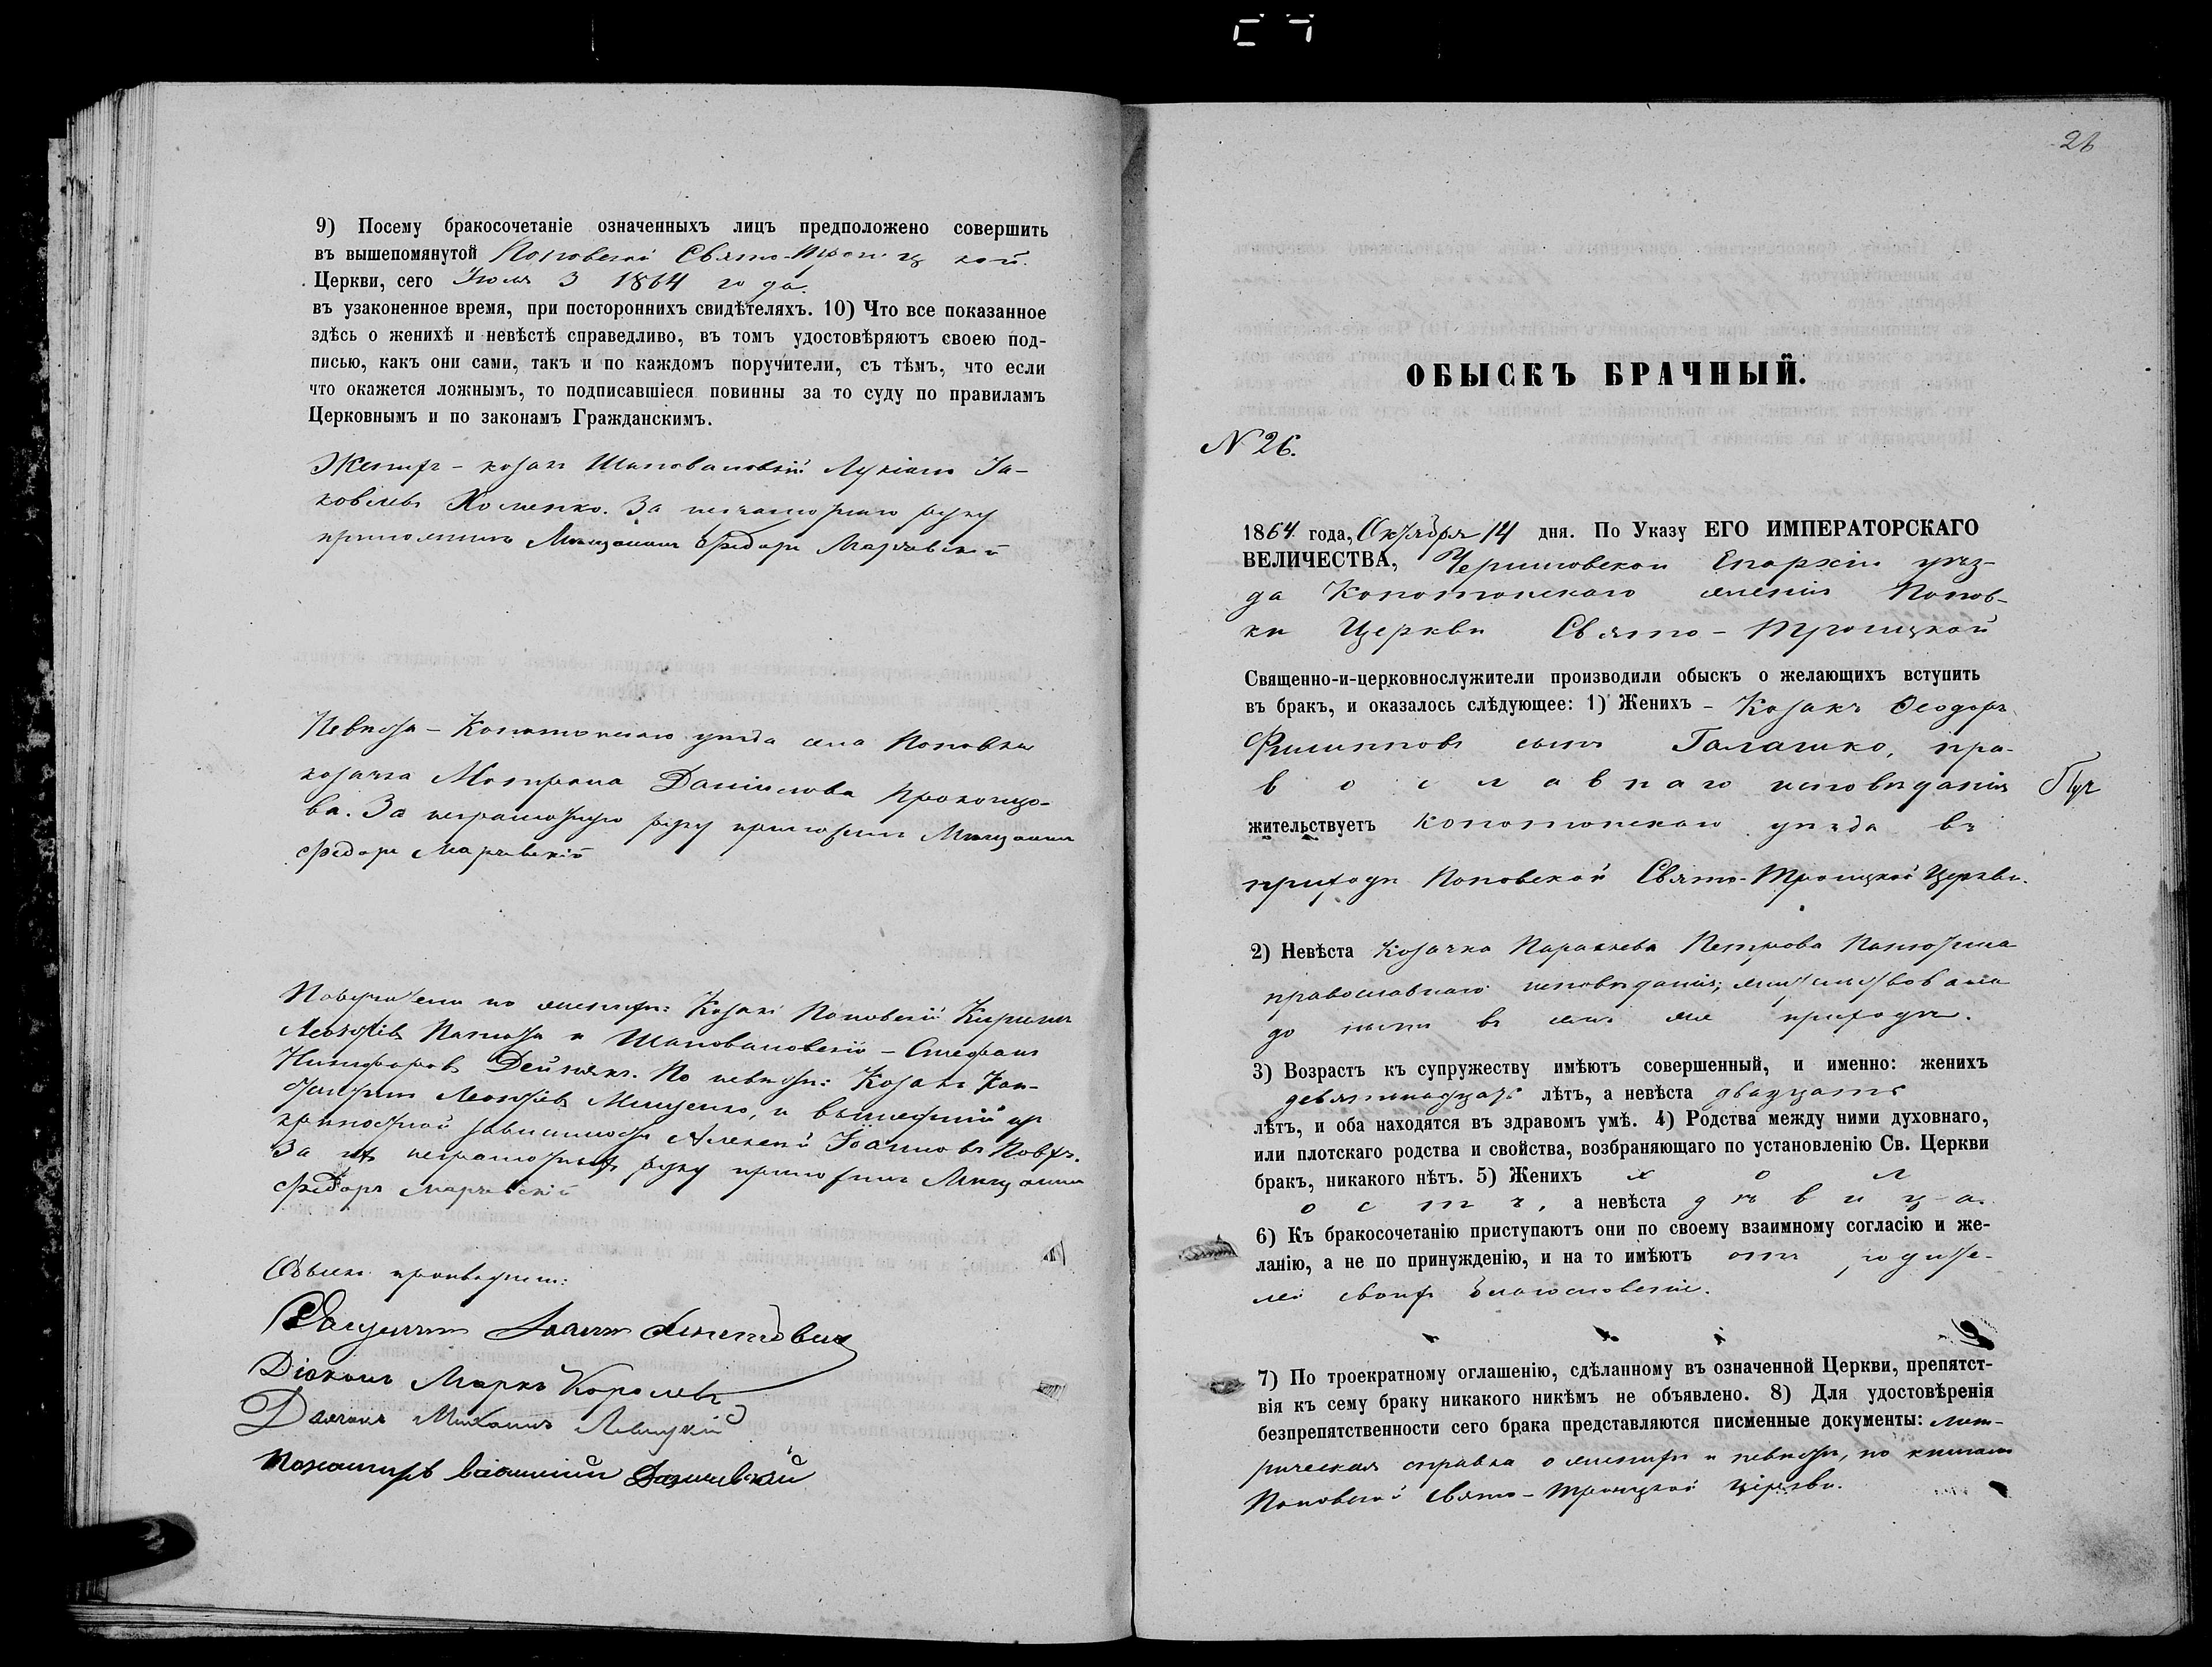 9) Посему бракосочетаніе означенныхъ лицъ предположено совершить
въ вышепомянутой Поповской Свято-Троицкой
Церкви, сего Іюля 3 1864 года.
въ узаконенное время, при постороннихъ свидѣтеляхъ. 10) Что все показанное
здѣсь о женихѣ и невѣстѣ справедливо, въ томъ удостовѣряютъ своею под-
писью, какъ они сами, такъ и по каждомъ поручители, съ тѣмъ, что если
что окажется ложнымъ, то подписавшіеся повинны за то суду по правиламъ
Церковнымъ и по законамъ Гражданскимъ.
Женихъ - козакъ Шаповаловскій Лукіанъ Іа-
ковлевъ Хоменко. За неграмотнаго руку
приложилъ Мѣщанинъ Ѳедоръ Марчевскій
Невѣста - Конотопскаго уѣзда села Поповки
козачка Матрона Даніилова Прокопцо-
ва. За неграмотную руку приложилъ Мѣщанинъ
Ѳедоръ Марчевскій
Поручители по женихѣ: Козакъ Поповскій Кирилъ
Леонтіевъ и Шаповаловскій - Стефанъ
Никифоровъ Дейнекъ. По невѣстѣ: Козакъ
Леонтіевъ Мищенко, и вышедшій изъ
крѣпостной зависимости Алексѣй Іоанновъ
За ихъ неграмотныхъ руку приложилъ Мѣщанинъ
Ѳедоръ Марчевскій
Обыскъ производили:
Священникъ Іоаннъ
Діаконъ Маркъ Королевъ
Дьячокъ Михаилъ Левицкій
Пономарь
26
ОБЫСКЪ БРАЧНЫЙ.
N 26.
1864 года, Октября 14 дня. По Указу ЕГО ИМПЕРАТОРСКАГО
ВЕЛИЧЕСТВА, Черниговской Епархіи уѣз-
да Конотопскаго Попов-
ки Церкви Свято-Троицкой
Священно-и-церковнослужители производили обыскъ о желающихъ вступить
въ бракъ, и оказалось слѣдующее: 1) Женихъ - Козакъ Ѳеодоръ
Филипповъ сынъ Галашко, пра-
вославнаго исповѣданія
жительствуетъ Конотопскаго уѣзда въ
приходѣ Поповской Свято-Троицкой Церкви.
2) Невѣста Козачка Параскева Петрова
православнаго исповѣданія, жительствовала
до нынѣ въ томъ же приходѣ.
3) Возрастъ къ супружеству имѣютъ совершенный, и именно: женихъ
девятнадцать лѣтъ, а невѣста двадцать
лѣтъ, и оба находятся въ здравомъ умѣ. 4) Родства между ними духовнаго,
или плотскаго родства и свойства, возбраняющаго по установленію Св. Церкви
бракъ, никакого нѣтъ. 5) Женихъ хол
остъ, а невѣста дѣвица.
6) Къ бракосочетанію приступаютъ они по своему взаимному согласію и же-
ланію, а не по принужденію, и на то имѣютъ отъ родите-
лей своихъ благословеніе.
7) По троекратному оглашенію, сдѣланному въ означенной Церкви, препятст-
вія къ сему браку никакого никѣмъ не объявлено. 8) Для удостовѣренія
безпрепятственности сего брака представляются писменные документы: мет-
рическая справка о женихѣ и невѣстѣ, по книгамъ
Поповской Свято-Троицкой Церкви.